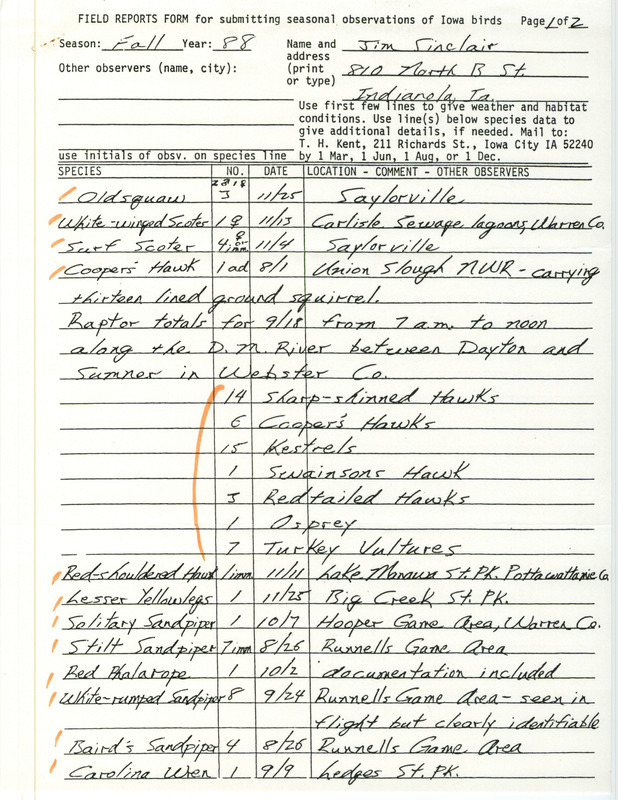 FIELD REPORTS FORM for submitting seasonal observations of Iowa birds Page 1 of 2
Season: Fall Year: 88 Name and Jim Sinclair
address
Other observers (name, city): (print 810 North B St.
or type)
Indianola, Ia.
Use first few lines to give weather and habitat
conditions. Use line(s) below species data to
give additional details, if needed. Mail to:
T. H. Kent, 211 Richards St., Iowa City IA 52240
use initials of obsv. on species line by 1 Mar, 1 Jun, 1 Aug, or 1 Dec.
SPECIES NO. DATE LOCATION - COMMENT - OTHER OBSERVERS
2♀ 1♂
Oldsquaw 3 11/25 Saylorville
White-winged Scoter 1♀ 11/13 Carlisle Sewage lagoons, Warren Co.
Surf Scoter 4 ♀ or imm 11/4 Saylorville
Coopers' Hawk 1 ad 8/1 Union Slough NWR - carrying
thirteen lined ground squirrel.
Raptor totals for 9/18 from 7 a.m. to noon
along the D.M. River between Dayton and
Sumner in Webster Co.
14 Sharp-shinned Hawks
6 Cooper's Hawks
15 Kestrels
1 Swainsons Hawk
3 Redtailed Hawks
1 Osprey
7 Turkey Vultures
Red-shouldered Hawk 1 imm 11/11 Lake Manawa St. Pk. Pottawattamie Co.
Lesser Yellowlegs 1 11/25 Big Creek St. Pk.
Solitary Sandpiper 1 10/7 Hooper Game Area, Warren Co.
Stilt Sandpiper 7 imm 8/26 Runnells Game Area
Red Phalarope 1 10/2 documentation included
White-rumped Sandpiper 8 9/24 Runnells Game Area - seen in
flight but clearly identifiable
Baird's Sandpiper 4 8/26 Runnells Game Area
Carolina Wren 1 9/9 Ledges St. Pk.